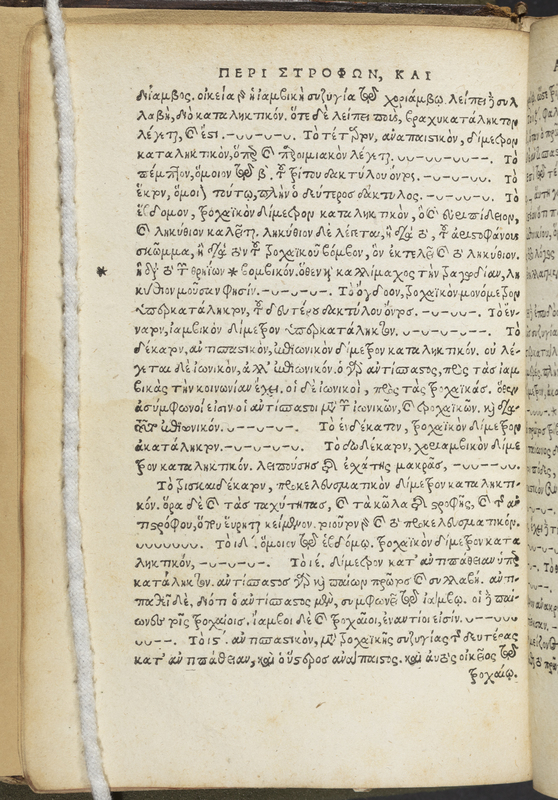 ΠΕΡΙ ΣΤΡΟΦΩΝ, ΚΑΙ
δίαμβος. οἰκεία γὰρ ἡ ἰαμβικὴ συζυγία τῷ χοριάμβῳ. λείπει ἡ συλ
λαβὴ, διὸ καταληκτικόν. ὅτε δὲ λείπει ποῦς, βραχυκατάληκτον
λέγεται, καὶ ἔστι. -υυ-υ-υ. Τὸ τέταρτον, ἀναπαιστικὸν, δίμετρον
καταληκτικὸν, ὅπερ καὶ παροιμιακὸν λέγεται. Τὸ
πέμπτον, ὅμοιον τῷ β. τοῦ τρίτου δακτύλου ὄντος. Τὸ
ἕκτον, ὅμοιον τούτῳ, πλὴν ὁ δεύτερος δάκτυλος. Τὸ
ἕβδομον, τροχαϊκὸν δίμετρον καταληκτικὸν, ὃ καὶ εὐριπίδειον,
καὶ ληκύθιον καλεῖται. ληκύθιον δὲ λέγεται, ἢ διὰ τὸ τοῦ ἀριστοφάνους
σκῶμμα, ἢ διὰ τὸν τοῦ τροχαϊκοῦ βόμβον, ὃν ἐκτελεῖ καὶ τὸ ληκύθιον.
* ἢ διὰ τὸ τῶν θρηίων * βομβικόν. ὅθεν καὶ καλλίμαχος τὴν τραγῳδίαν, λη
κύθιον μοῦσαν φησίν. -υ-υ-υ-. Τὸ ὄγδοον, τροχαϊκὸν μονόμετρον
ὑπερκατάληκτον, τοῦ δευτέρου δακτύλου ὄντος. Τὸ ἔν-
νατον, ἰαμβικὸν δίμετρον ὑπερκατάληκτον. Τὸ
δέκατον, ἀντισπαστικὸν, ὠθιωνικὸν δίμετρον καταληκτικόν. οὐ λέ-
γεται δὲ ἰωνικὸν, ἀλλ' ὠθιωνικόν. ὁ γὰρ ἀντίσπαστος, πρὸς τὰς ἰαμ
βικὰς τὴν κοινωνίαν ἔχει. οἱ δὲ ἰωνικοὶ, πρὸς τὰς τροχαϊκάς. ὅθεν
ἀσύμφωνοί εἰσιν οἱ ἀντίσπαστοι μετὰ τῶν ἰωνικῶν, καὶ τροχαϊκῶν. καὶ διὰ
τοῦτο ὠθιωνικόν. Τὸ ἑνδέκατον, τροχαϊκὸν δίμετρον
ἀκατάληκτον. -υ-υ-υ-υ. Τὸ δωδέκατον, χοριαμβικὸν δίμε
τρον καταληκτικόν. λειπούσης τῆς ἐσχάτης μακρᾶς,
Τὸ τρισκαιδέκατον, προκελευσματικὸν δίμετρον καταληκτι-
κόν. ὅρα δὲ καὶ τὰς ταχύτητας, καὶ τὰ κῶλα τῆς στροφῆς, καὶ τῆς ἀν
τιστρόφου, ὅπου εὕρηται κείμενον. τοιοῦτον γὰρ καὶ τὸ προκελευσματικόν.
υυυυυυυ. Τὸ ιδ. ὅμοιον τῷ ἑβδόμῳ. τροχαϊκὸν δίμετρον κατα
ληκτικὸν, -υ-υ-υ-. Τὸ ιε. δίμετρον κατ' ἀντιπάθειαν ὑπερ
κατάληκτον. ἀντίσπαστος γὰρ καὶ παίων πρῶτος καὶ συλλαβή. ἀντι-
παθεῖ δὲ, διότι ὁ ἀντίσπαστος μὲν, συμφωνεῖ τῷ ἰάμβῳ. οἱ δὲ παί-
ωνες τοῖς τροχαίοις. ἴαμβοι δὲ καὶ τροχαῖοι, ἐναντίοι εἰσίν.
Τὸ ις. ἀντισπαστικὸν, μετὰ τροχαϊκῆς συζυγίας τῆς δευτέρας
κατ' ἀντιπάθειαν, καὶ ὁ ὕστερος ἀνάπαιστος. καὶ αὐτὸς οἰκεῖος τῷ
τροχαίῳ.